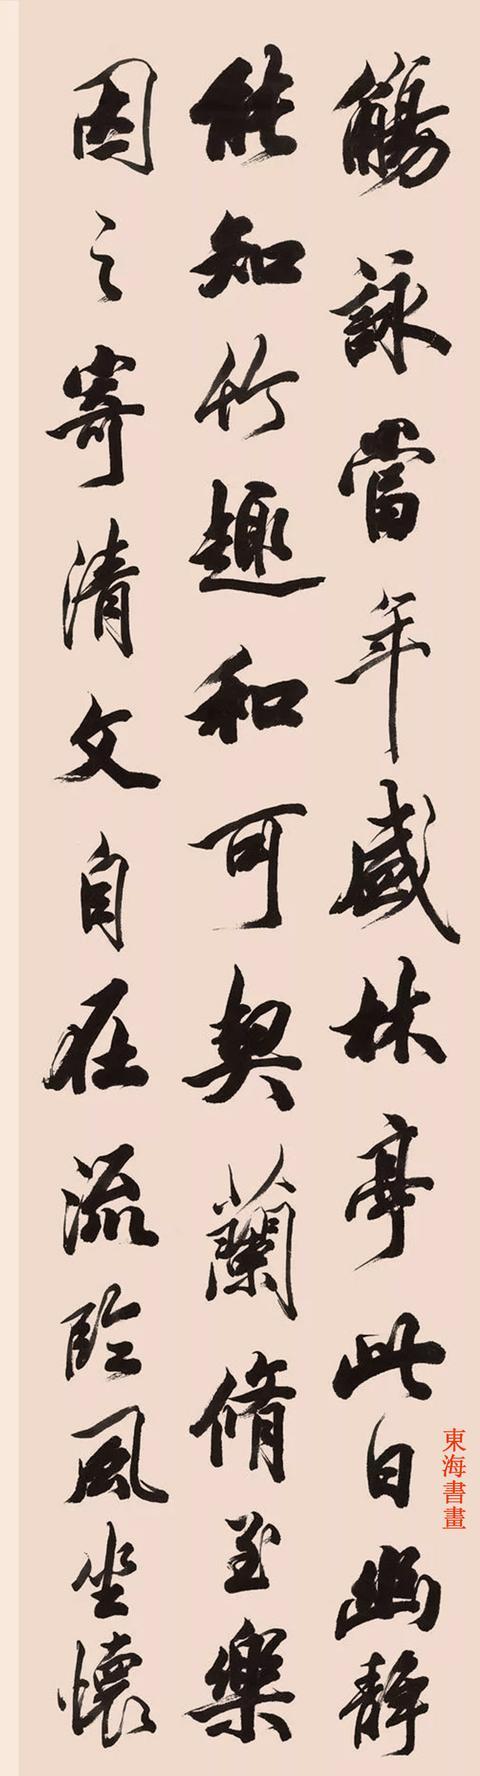 觴詠當年盛林亭此日幽靜
能知竹趣和可契蘭脩至樂
因之寄清文自在流臨風坐懷
東海書畫